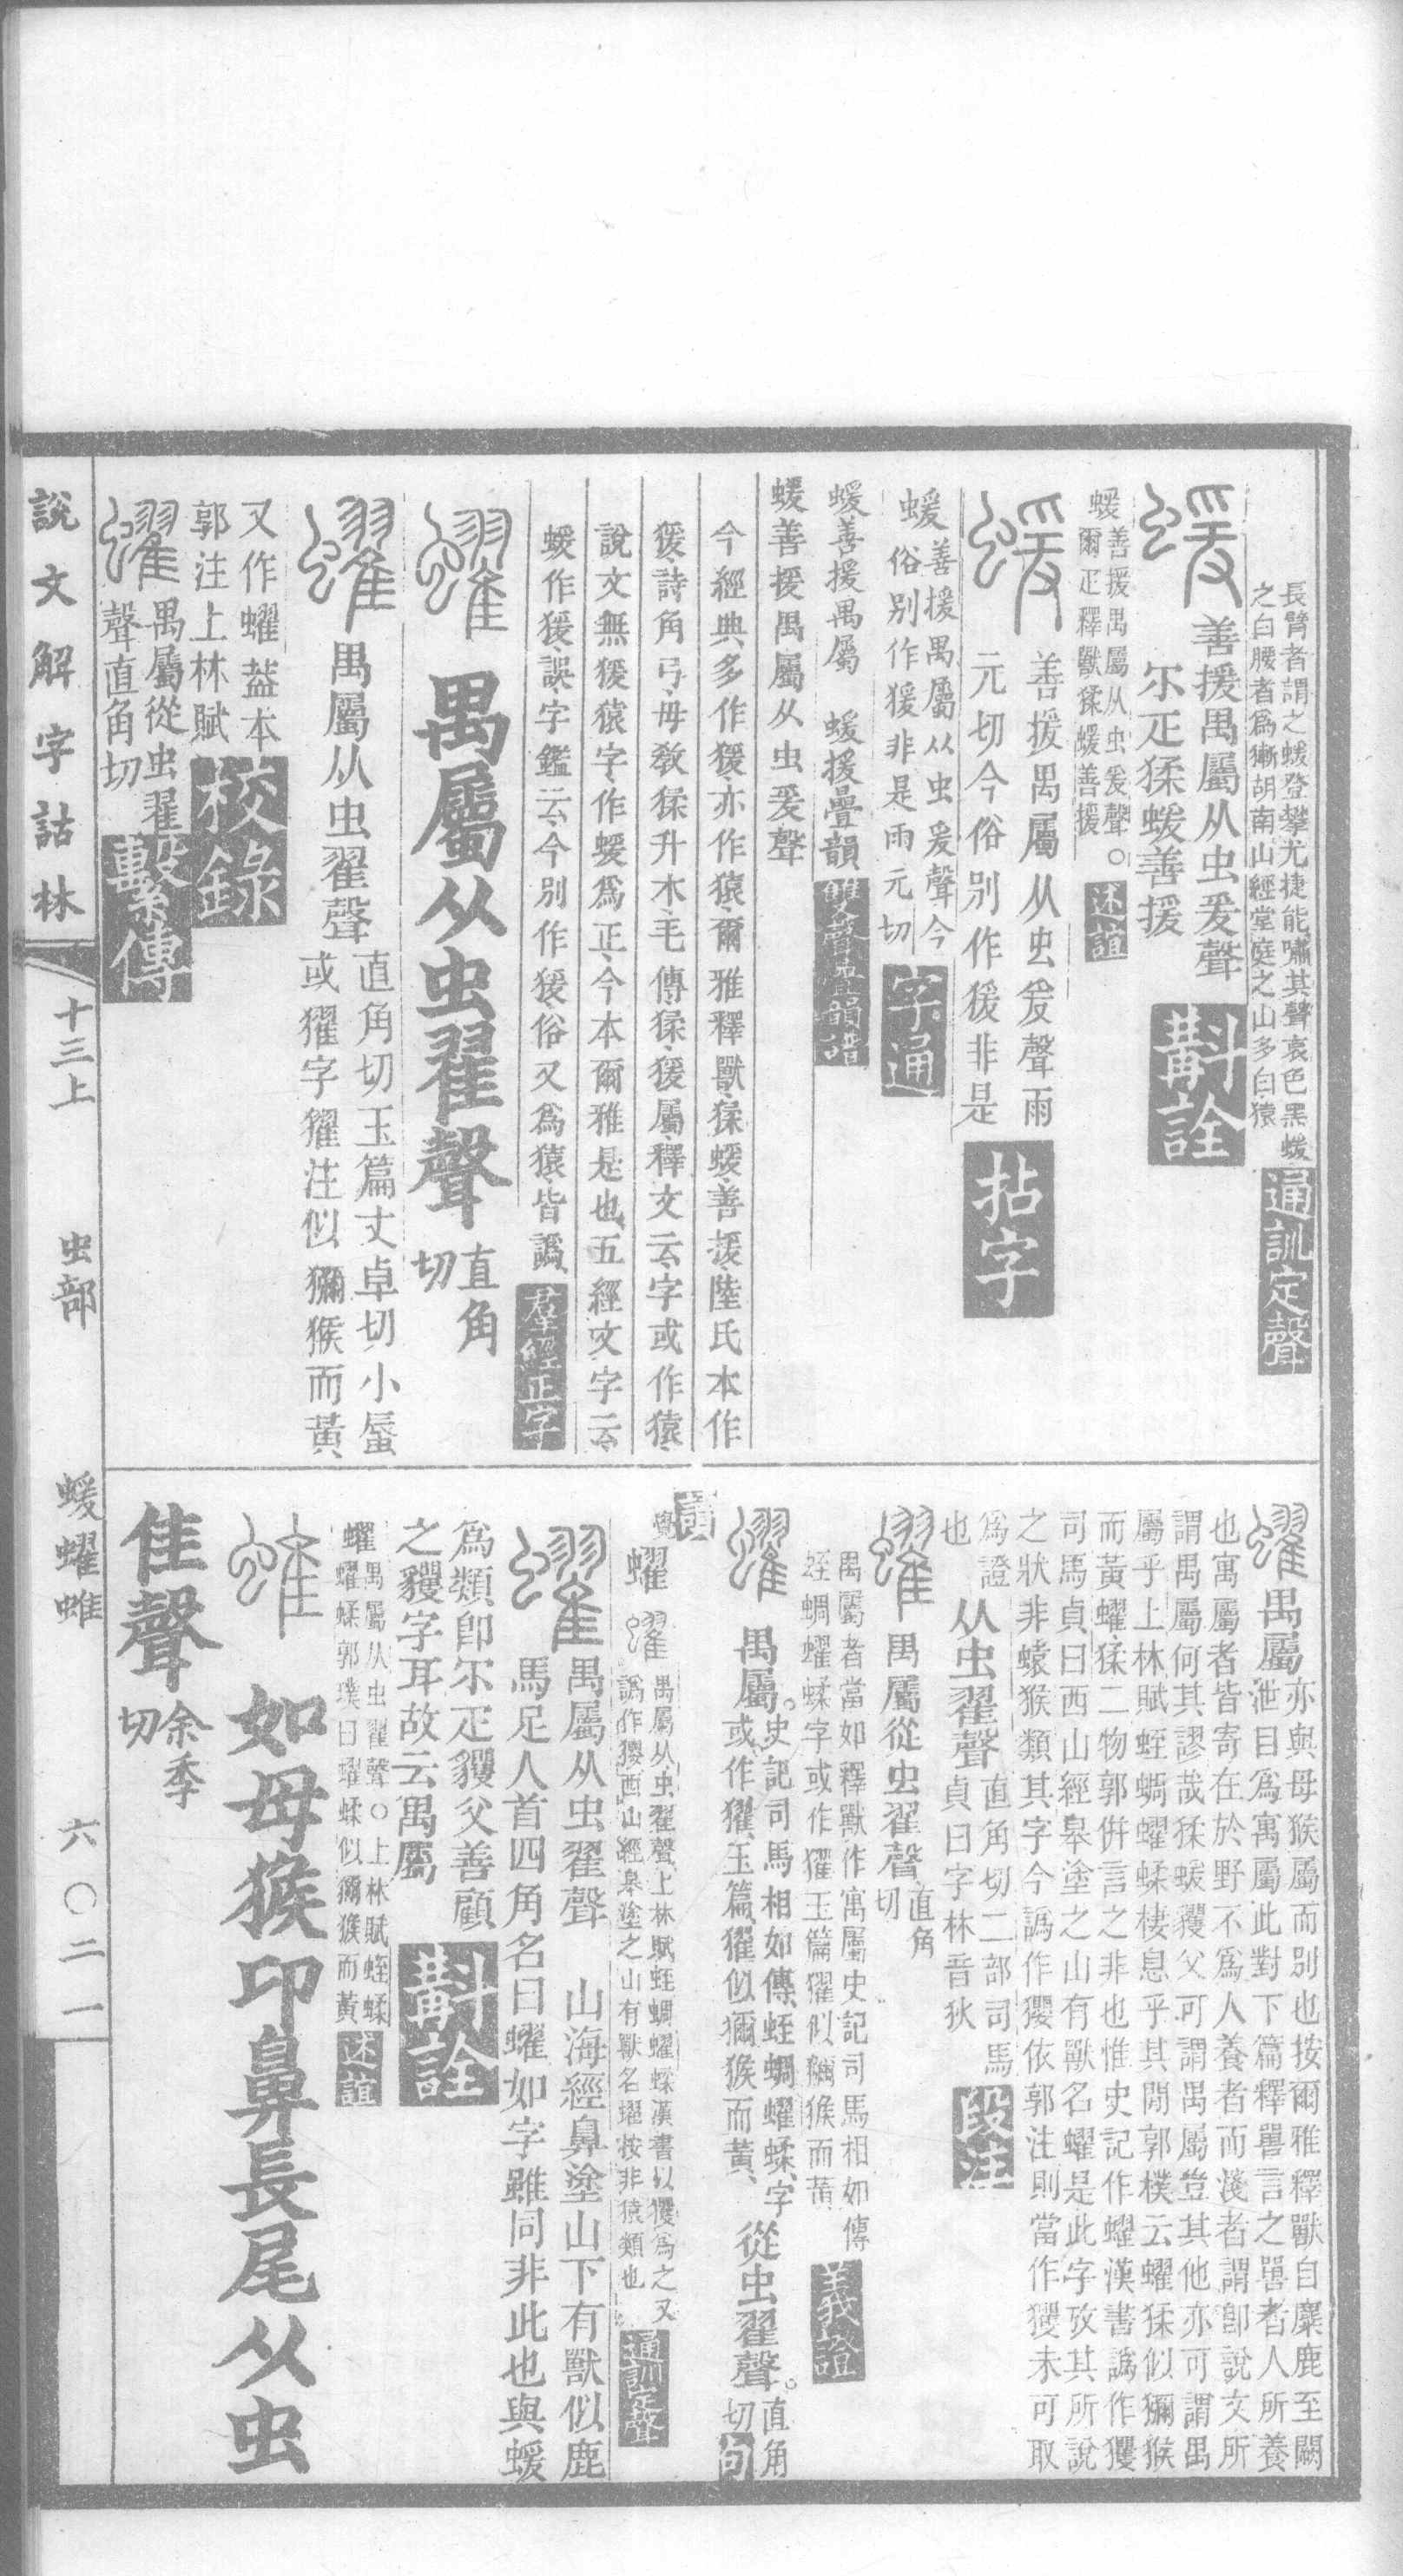 長臂者謂之蝯登攀尤捷能嘯其聲哀色黑蝯
之白腰者爲獑胡南山經堂庭之山多白猿
通訓定聲
蝯善援禺屬从虫爰聲
尒疋猱蝯善援
斠詮
蝯善援禺屬从虫爰聲○
爾疋釋獸猱蝯善援
述誼
蝯善援禺屬从虫爰聲雨
元切今俗別作猨非是
拈字
蝯善援禺屬从虫爰聲今
俗別作猨非是雨元切
字通
蝯善援禺屬 蝯援疊韻
雙聲疊韻譜
蝯善援禺屬从虫爰聲
今經典多作猨亦作猿爾雅釋獸猱蝯善援陸氏本作
猨詩角弓毋敎猱升木毛傳猱猨屬釋文云字或作猿
說文無猨猿字作蝯爲正今本爾雅是也五經文字云
蝯作猨誤字鑑云今別作猨俗又爲猿皆譌
羣經正字
蠗禺屬从虫翟聲直角
切
蠗禺屬从虫翟聲直角切玉篇丈卓切小蜃
或玃字玃注似獼猴而黃
又作蠗蓋本
郭注上林賦
校錄
蠗禺屬從虫翟
聲直角切
繫傳
說文解字詁林
十三上
虫部
蝯蠗蜼
六〇二一
蠗禺屬亦與母猴屬而別也按爾雅釋獸自麋鹿至闕
泄目爲寓屬此對下篇釋嘼言之嘼者人所養
也寓屬者皆寄在於野不爲人養者而淺者謂卽說文所
謂禺屬何其謬哉猱蝯玃父可謂禺屬豈其他亦可謂禺
屬乎上林賦蛭蜩蠗蝚棲息乎其閒郭樸云蠗猱似獼猴
而黃蠗猱二物郭併言之非也惟史記作蠗漢書譌作玃
司馬貞曰西山經皋塗之山有獸名蠗是此字攷其所說
之狀非蝯猴類其字今譌作玃依郭注則當作玃未可取
爲證从虫翟聲直角切二部司馬
也貞曰字林音狄
段注
蠗禺屬從虫翟聲直角
切
禺屬者當如釋獸作寓屬史記司馬相如傳
蛭蜩蠗蝚字或作玃玉篇玃似獼猴而黃
義證
蠗禺屬。史記司馬相如傳蛭蜩蠗蝚字
或作玃玉篇玃似獼猴而黃從虫翟聲。直角
切
句讀
蠗禺屬从虫翟聲上林賦蛭蜩蠗蝚漢書以玃爲之又
譌作玃西山經皋塗之山有獸名蠗按非猿類也
通訓定聲
蠗禺屬从虫翟聲 山海經鼻塗山下有獸似鹿
馬足人首四角名曰蠗如字雖同非此也與蝯
爲類卽尒疋玃父善顧
之玃字耳故云禺屬
斠詮
蠗禺屬从虫翟聲○上林賦蛭蝚
蠗蝚郭璞曰蠗蝚似獼猴而黃
述誼
蜼如母猴卬鼻長尾从虫
隹聲余季
切